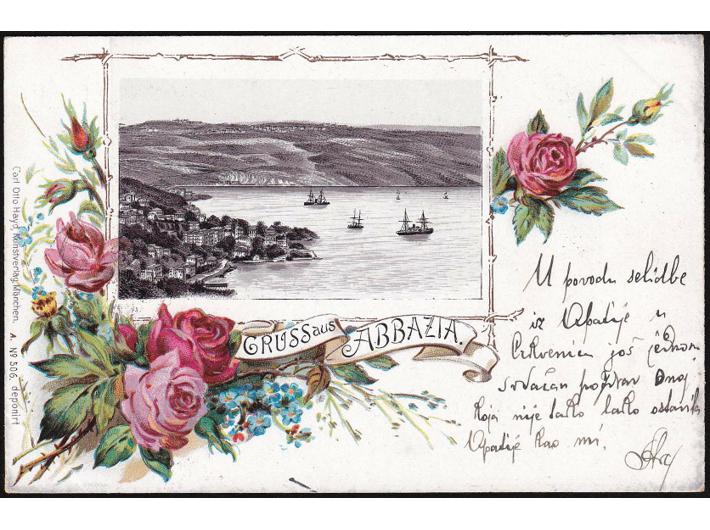 GRUSS aus ABBAZIA.
Carl Otto Hayd Kunstverlag, München. A. № 506. deponirt
U povodu selidbe
iz Opatije u
Crikvenicu još jednom
srdačan pozdrav Onoj
koja nije tako lako ostavila
Opatije kao mi.